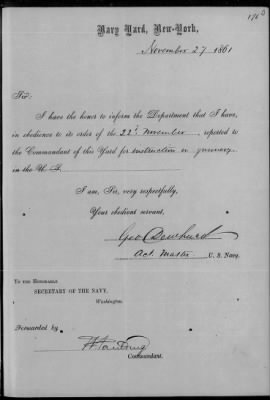 Navy Yard, New-York,
November 27 1861
Sir:
I have the honor to inform the Department that I have,
in obedience to its order of the 22d November, reported to
the Commandant of this Yard for instruction in gunnery
in the U. S.
I am, Sir, very respectfully,
Your obedient servant,
Geo
Act. Master U. S. Navy.
TO THE HONORABLE
SECRETARY OF THE NAVY,
Washington.
Forwarded by
Commandant.